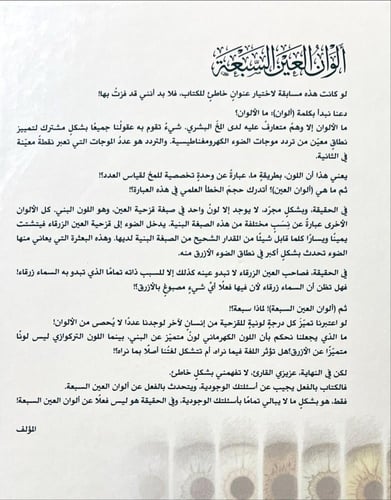 ألوان العين السبعة
لو كانت هذه مسابقة لاختيار عنوانٍ خاطئٍ للكتاب، فلا بد أنني قد فزتُ بها!
دعنا نبدأ بكلمة (ألوان)؛ ما الألوان!
ما الألوان إلا وهمٌ متعارفٌ عليه لدى المخ البشري. شيءٌ تقوم به عقولُنا جميعًا بشكلٍ مشترك لتمييز
نطاقٍ معيّن من تردد موجات الضوء الكهرومغناطيسية. والتردد هو عددُ الموجات التي تعبر نقطةً معيّنة
في الثانية.
يعني هذا أن اللون، بطريقةٍ ما، عبارةٌ عن وحدةٍ تخصصية للمخ لقياس العدد!!
ثم ما هي (ألوان العين)! أتدرك حجمَ الخطأ العلمي في هذه العبارة؟!
في الحقيقة، وبشكلٍ مجرّد، لا يوجد إلا لونٌ واحد في صبغة قزحية العين، وهو اللون البني. كل الألوان
الأخرى عبارةٌ عن نِسَبٍ مختلفة من هذه الصبغة البنية. يدخل الضوء إلى قزحية العين الزرقاء فيتشتت
يمينًا ويسارًا كلما قابل شيئًا من المقدار الشحيح من الصبغة البنية لديها. وهذه البعثرة التي يعاني منها
الضوء تحدث بشكلٍ أكبر في نطاق الضوء الأزرق منه.
في الحقيقة، فصاحب العين الزرقاء لا تبدو عينه كذلك إلا للسبب ذاته تمامًا الذي تبدو به السماء زرقاء!
فهل تظن أن السماء زرقاء لأن فيها فعلًا أيَّ شيءٍ مصبوغٍ بالأزرق؟!
ثم (ألوان العين السبعة)! لماذا سبعة؟!
لو اعتبرنا تميّزَ كل درجةٍ لونية للقزحية من إنسانٍ لآخر لوجدنا عددًا لا يُحصى من الألوان!
ما الذي يجعلنا نحكم بأن اللون الكهرماني لونٌ متميّز عن البني، بينما اللون التركوازي ليس لونًا
متميّزًا عن الأزرق!هل تؤثر اللغة فيما نراه، أم تتشكل لغتُنا أصلًا بما نراه؟!
لكن في النهاية، عزيزي القارئ، لا تفهمني بشكلٍ خاطئ.
فالكتاب بالفعل يجيب عن أسئلتك الوجودية، ويتحدث بالفعل عن ألوان العين السبعة.
فقط، هو بشكلٍ ما لا يبالي تمامًا بأسئلتك الوجودية، وفي الحقيقة هو ليس فعلًا عن ألوان العين السبعة!
المؤلف